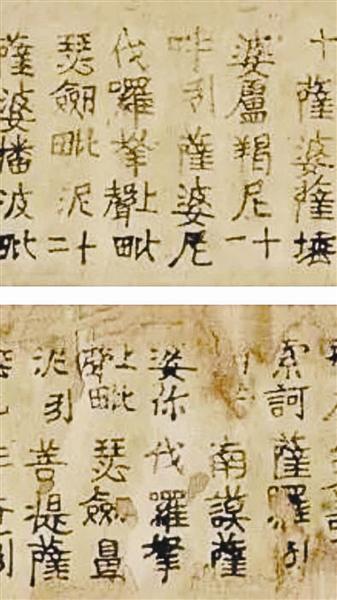 十薩婆薩埵
婆盧羯尼十一
吽引薩婆尼
伐羅拏上聲毗
瑟劒毗泥十二
薩婆播波毗
索訶薩羅引
南謨薩
婆你伐羅拏
上毗瑟劒鼻
泥引菩提薩